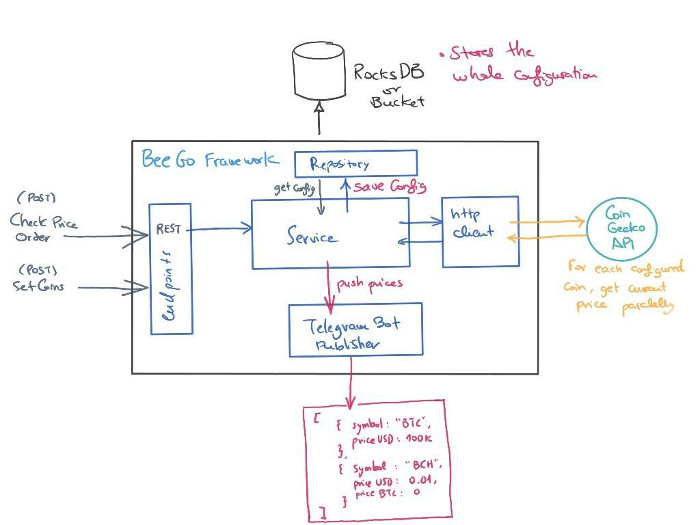 • Stores the
whole configuration
RocksDB
or
Bucket
BeeGo Framework
Repository
get config
save config
(POST)
Check Price
Order
(POST)
Set Coins
REST
Endpoints
Service
http
client
Coin
Gecko
API
For each configured
Coin, get current
price parallelly
push prices
Telegram Bot
Publisher
[
{ symbol: "BTC",
price USD: 100K
},
{ symbol: "BCH",
price USD: 0.01,
price BTC: 0
}
]